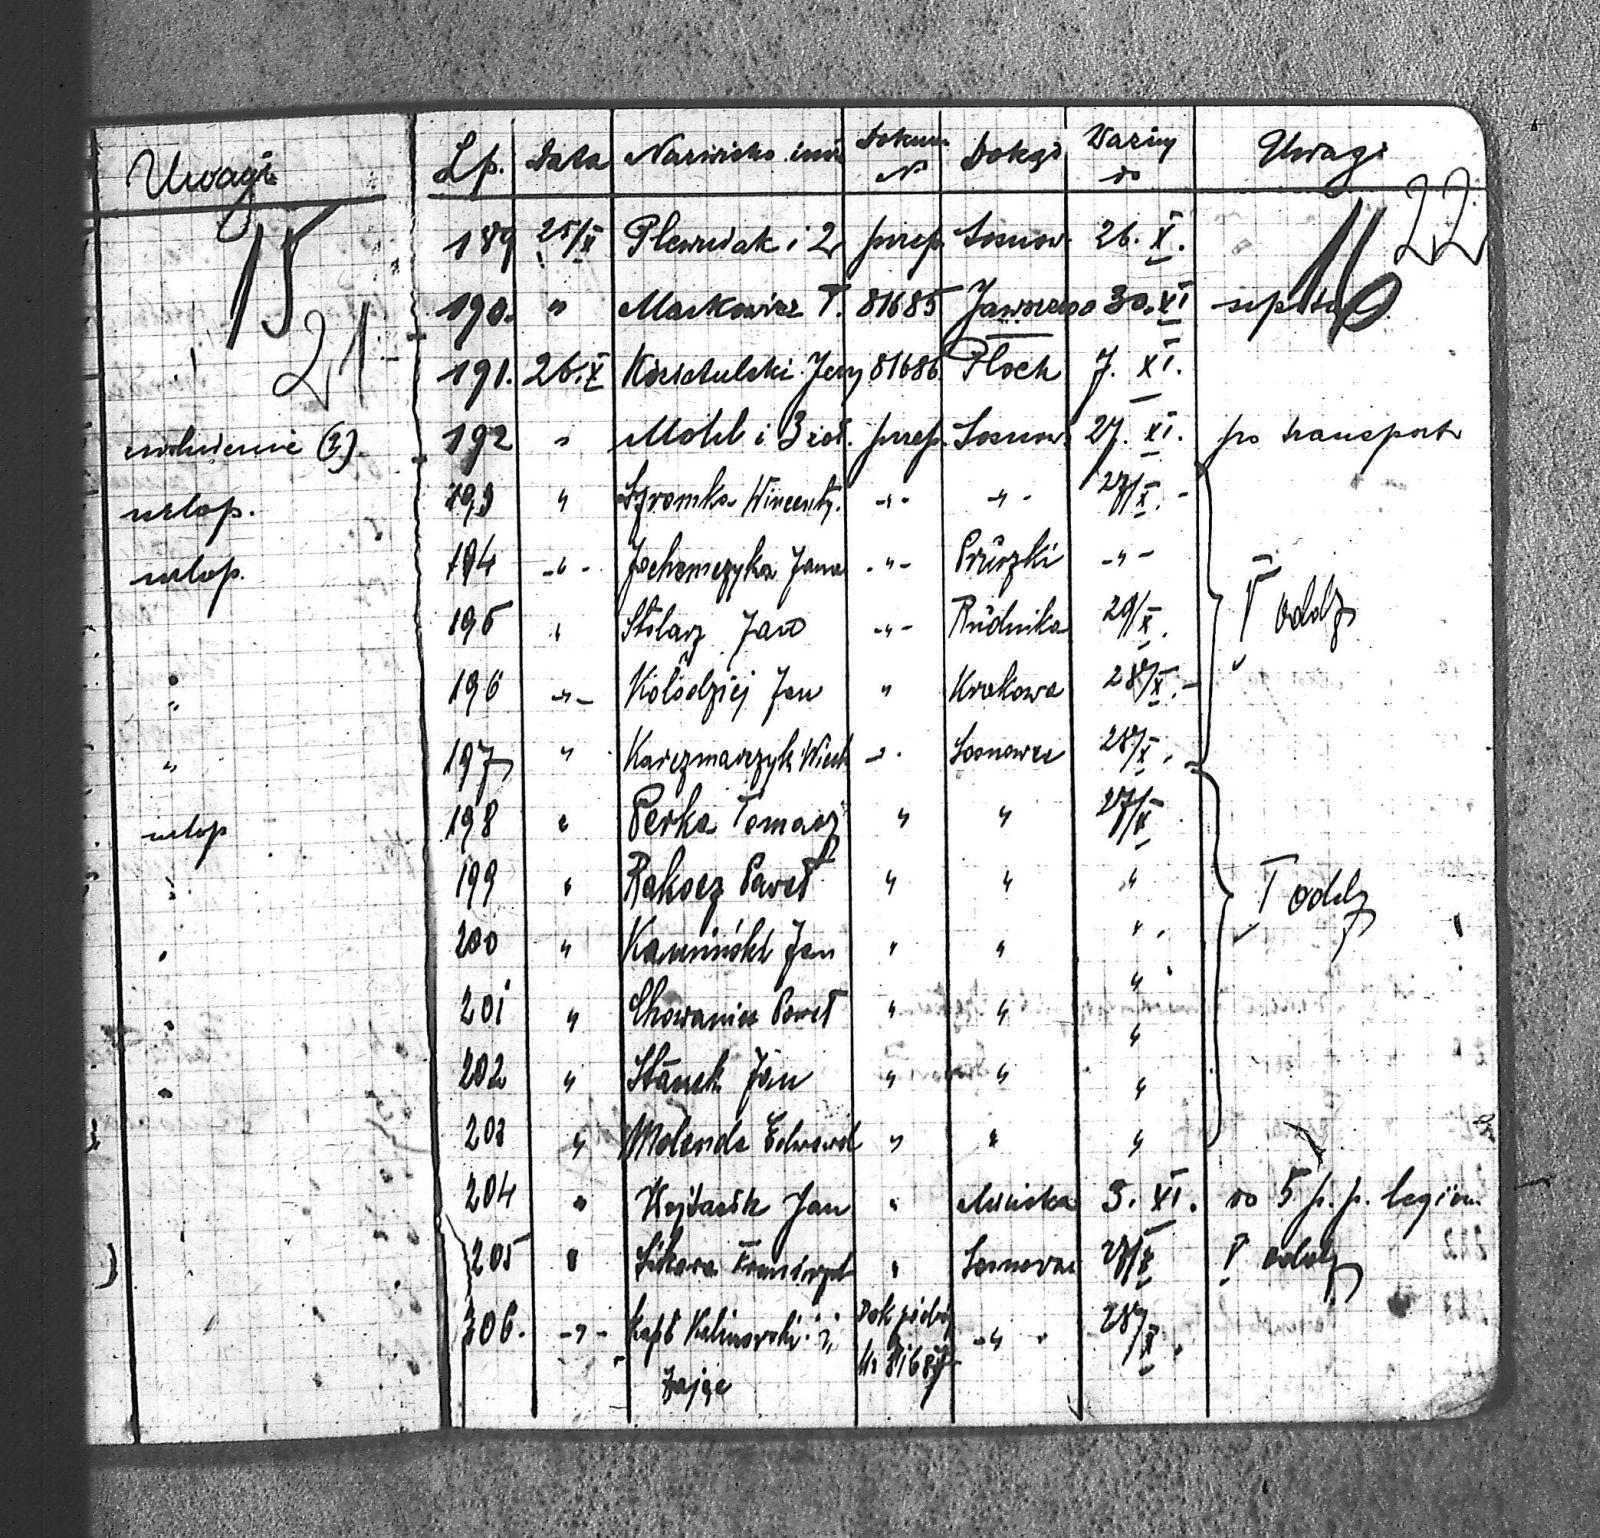 Uwagi
15
21
zwolnienie (3).
urlop.
urlop.
"
"
urlop
Lp. Data Nazwisko imię Dokum № Dokąd Ważny do Uwagi
16 22
189 25/X Plewniak i 2 przep. Sosnow. 26. X.
190. " Markowicz T. 81685 Jaworzno 30. XI
191. 26.X Jerzy 81686 Płock 7. XI.
192 " Mohl i 3 żoł. przep. Sosnow. 27. XI. po transport
193 " Szromka Wincenty. -"- -"- 27/X. -
194 -"- Jochemczyka Jana -"- Pruszki -"-
195 " Stolarz Jan -"- Rudnika 29/X.
196 -"- Kołodziej Jan " Krakowa 28/X. -
V oddz
197 " Karczmarczyk Wład -"- Sosnowca 28/X.
198 " Perka Tomasz " " 27/X.
199 " Rakocz Paweł " " "
I oddz
200 " Kamiński Jan " " "
201 " Chowaniec Paweł " " "
202 " Stanek Jan " " "
203 " Molenda Edward " " "
204 " Wojtasik Jan " Mińska 5. XI. do 5 p. p. legion.
205 " Sikora Franciszek " Sosnowca 28/X V oddz
206. -"- Kapt Kalinowski i Zając Dok podróż Nr 81687 -"- 28/X.